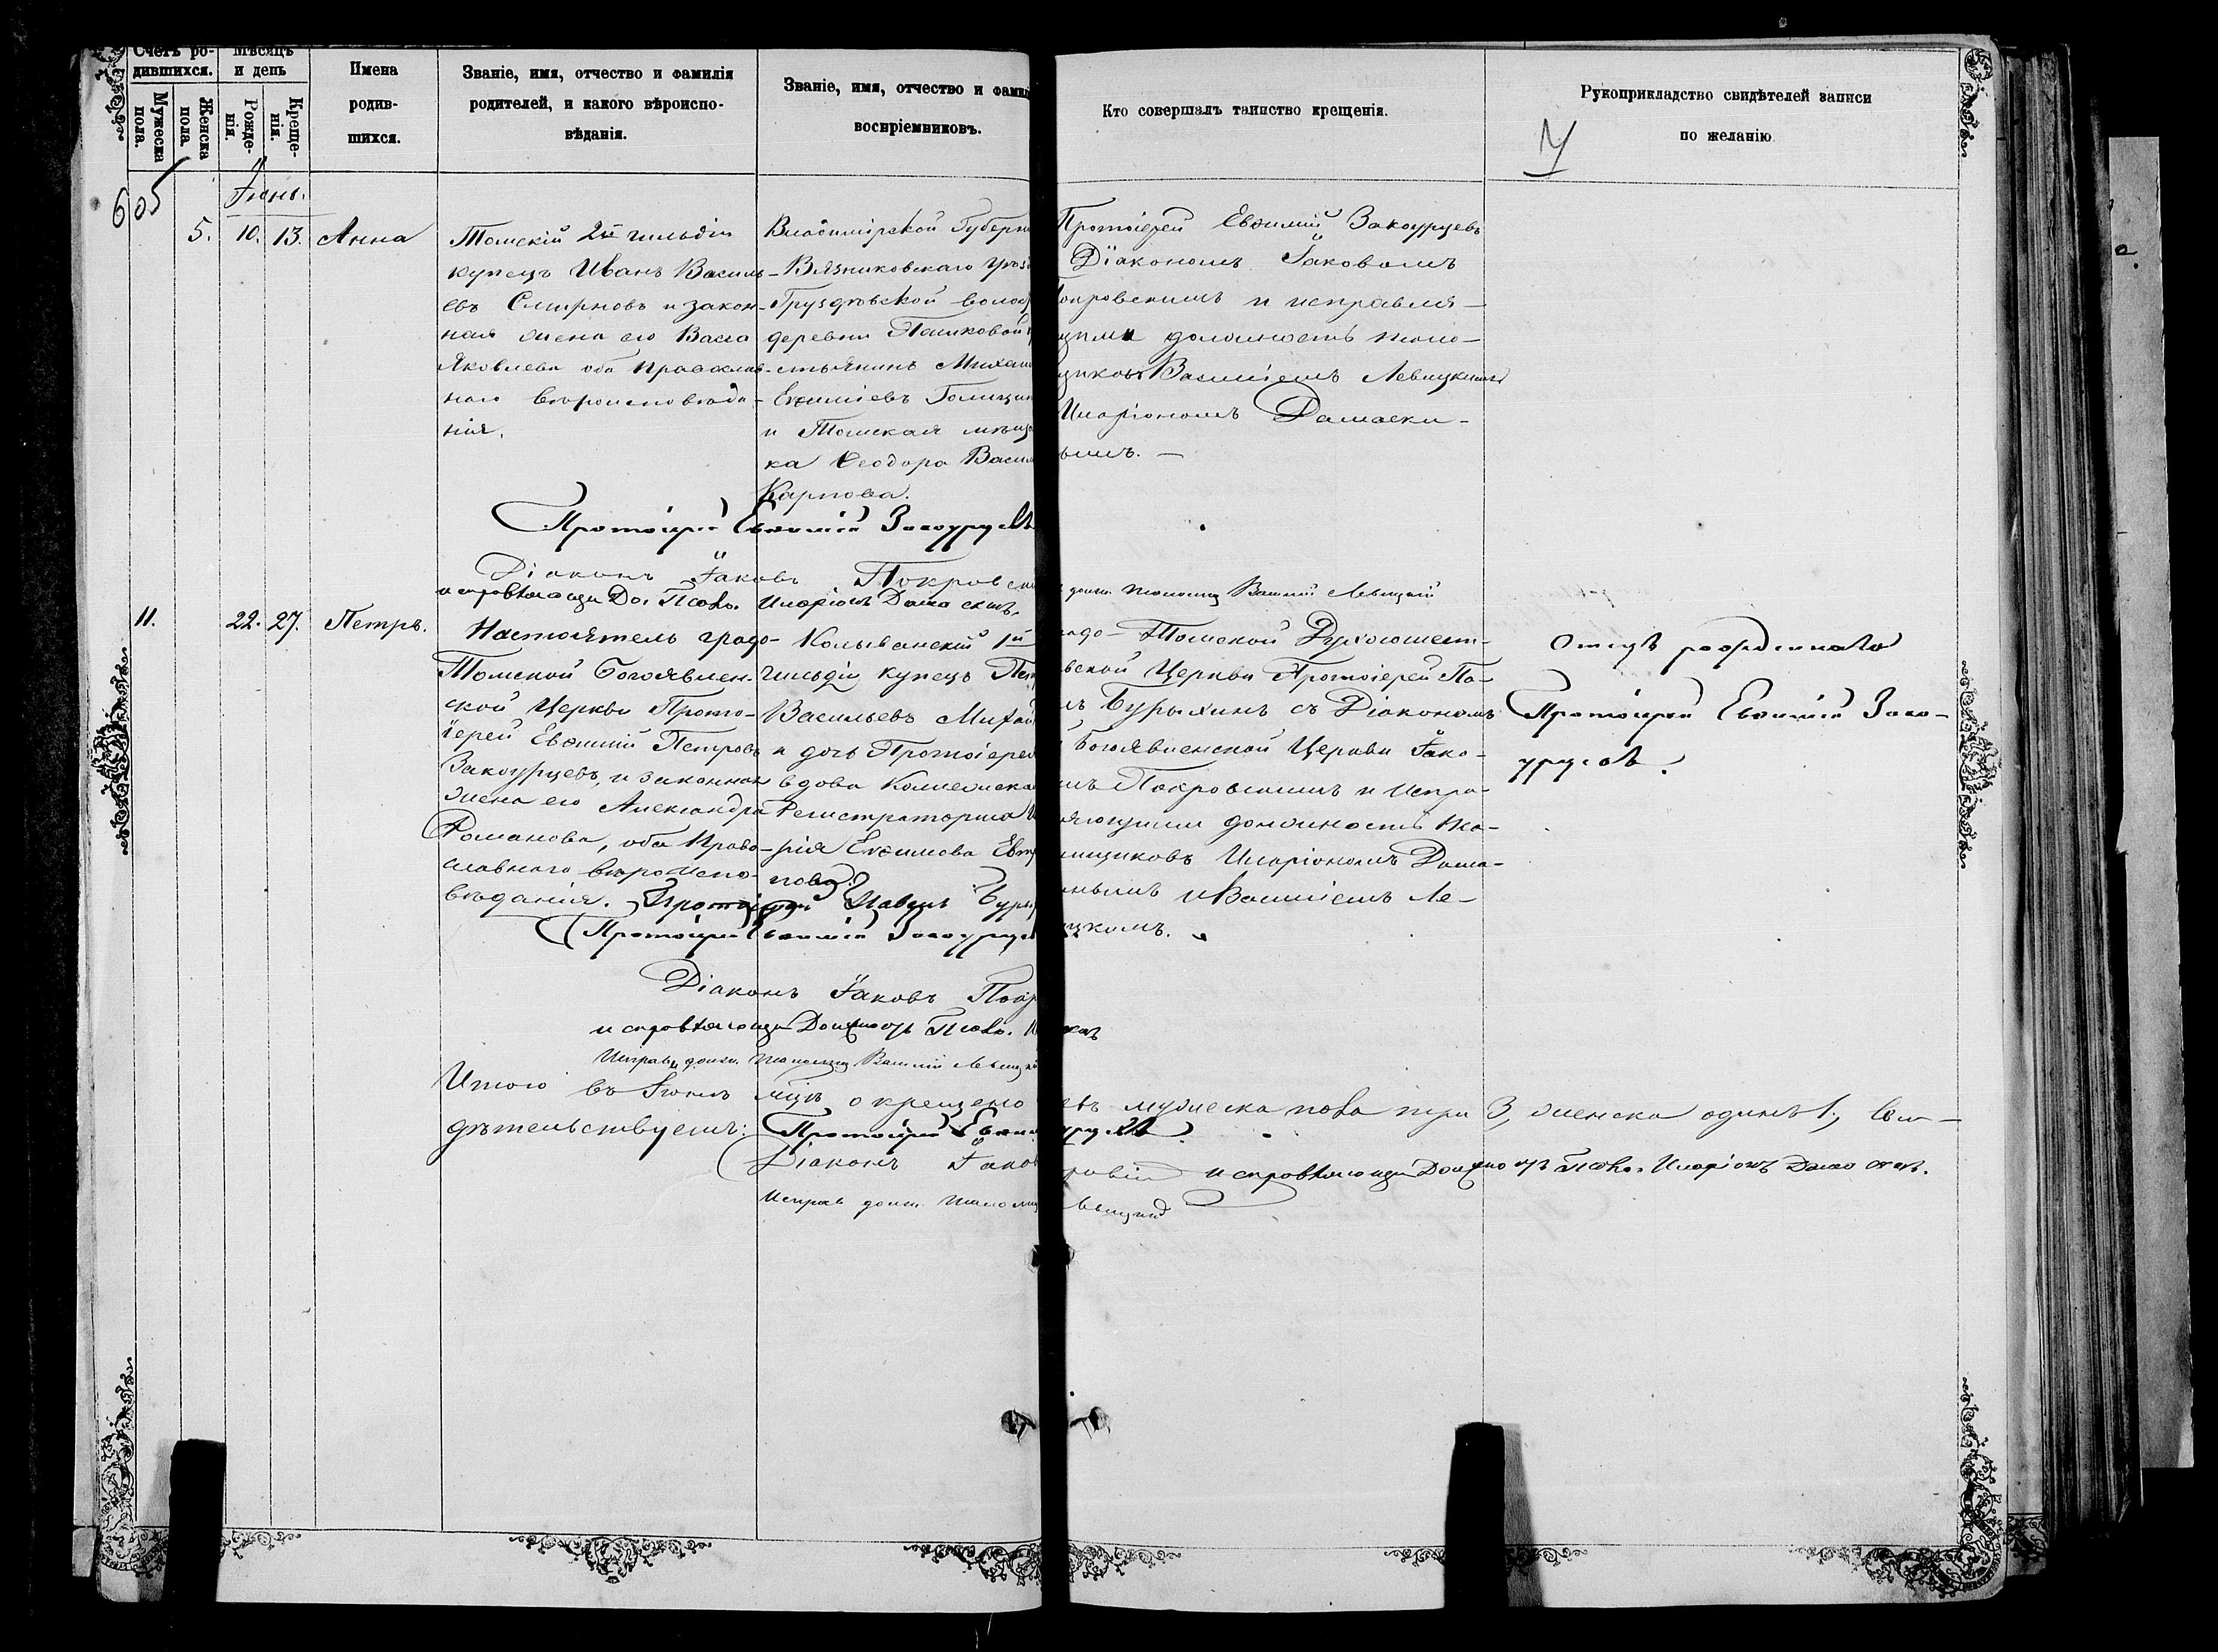 Счетъ ро-
дившихся.
Мужеска пола.
Женска пола.
Мѣсяцъ
и день
Рожде-
нія.
Креще-
нія.
Имена
родив-
шихся.
Званіе, имя, отчество и фамилія
родителей, и какого вѣроиспо-
вѣданія.
Званіе, имя, отчество и фами
воспріемниковъ.
Кто совершалъ таинство крещенія.
Рукоприкладство свидѣтелей записи
по желанію
605
Іюнь.
5. 10. 13. Анна
Томскій 2й гильдіи
купецъ Иванъ Василь-
евъ Смирновъ и закон-
ная жена его Васса
Яковлева оба православ-
наго вѣроисповѣда-
нія.
Владимірской Губерн
Вязниковскаго уѣз
Груздевской волос
деревни Пашковой
стьянинъ Михаи
Евѳиміевъ Голицын
и Томская мѣща
ка Ѳеодора Васил
Карпова.
Протоіерей Евѳимій Закоурцевъ
Діакономъ Іаковомъ
окровскимъ и исправля-
ющими должность псало-
щиковъ Василіемъ Левицкимъ
Иларіономъ Дамаски-
нымъ. —
Протоіерей Евѳимій Закоурцевъ
Діаконъ Іаковъ Покровск
исправляющи До. Псало. Иларіонъ Дамаскинъ.
долж. псаломщ Василій Левицкій
11. 22. 27. Петръ.
Настоятель градо-
Томской Богоявлен-
ской Церкви Прото-
іерей Евѳимій Петровъ
Закоурцевъ, и законная
жена его Александра
Романова, оба Право-
славнаго вѣроиспо-
вѣданія.
Колыванскій 1й
гильдіи купецъ Пет
Васильевъ Михай
и дочь Протоіерея
вдова Коллежска
Регистраторша
рія Евѳимова Евт
пова.
градо-Томской Духосошест-
вской Церкви Протоіерей Па-
лъ Бурыхинъ съ Діакономъ
Богоявленской Церкви Іако-
мъ Покровскимъ и Испра-
вляющими должность пса-
мщиковъ Иларіономъ Дама-
нымъ и Василіемъ Ле-
цкимъ.
Отецъ рожденнаго
Протоіерей Евѳимій Зако-
урцевъ.
Протоіерей Павелъ Буры
Протоіерей Евѳимій Закоурцев
Діаконъ Іаковъ Покр
исправляющи Должность Псало.
Исправ. долж. псаломщ Василій Левицкі
Итого въ Іюнѣ мцѣ окрещено
евъ мужеска пола три 3, женска одинъ 1, Сви-
дѣтельствуемъ: Протоіерей Евѳи
урцевъ.
Діаконъ Іаков
ровскій исправляющи Должность Псало. Иларіонъ Дамаскинъ.
Исправ долж. псаломщ
Левицкій